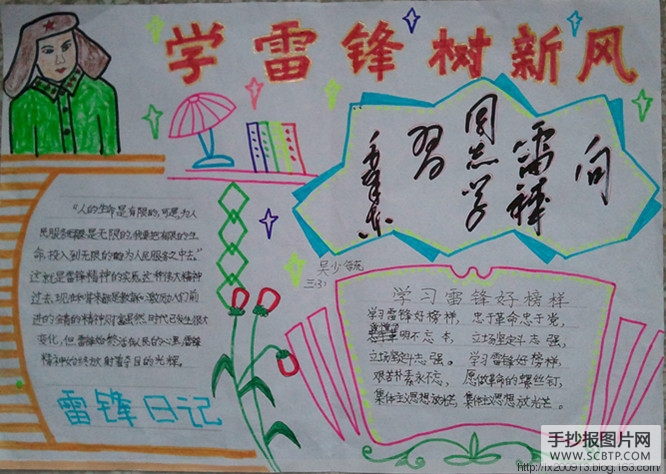 学雷锋树新风
向
雷锋
同志学
习
毛泽东
吴少
三(3)
“人的生命是有限的,可是,为人
民服务是无限的,我要把有限的生
命,投入到无限的为人民服务之中去。”
这就是雷锋精神的实质,这种伟大精神
进的
变化,但雷锋始终活在人民的心里,雷锋
精神始终放射着夺目的光辉。
雷锋日记
学习雷锋好榜样
学习雷锋好榜样,忠于革命忠于党,
明不忘本,立场坚定斗志强。
立场坚定斗志强。学习雷锋好榜样,
艰苦朴素永不忘,愿做革命的螺丝钉,
集体主义思想放光芒,集体主义思想放光芒。
手抄报图片网
WWW.SCBTP.COM
http://lx200913.blog.163.com